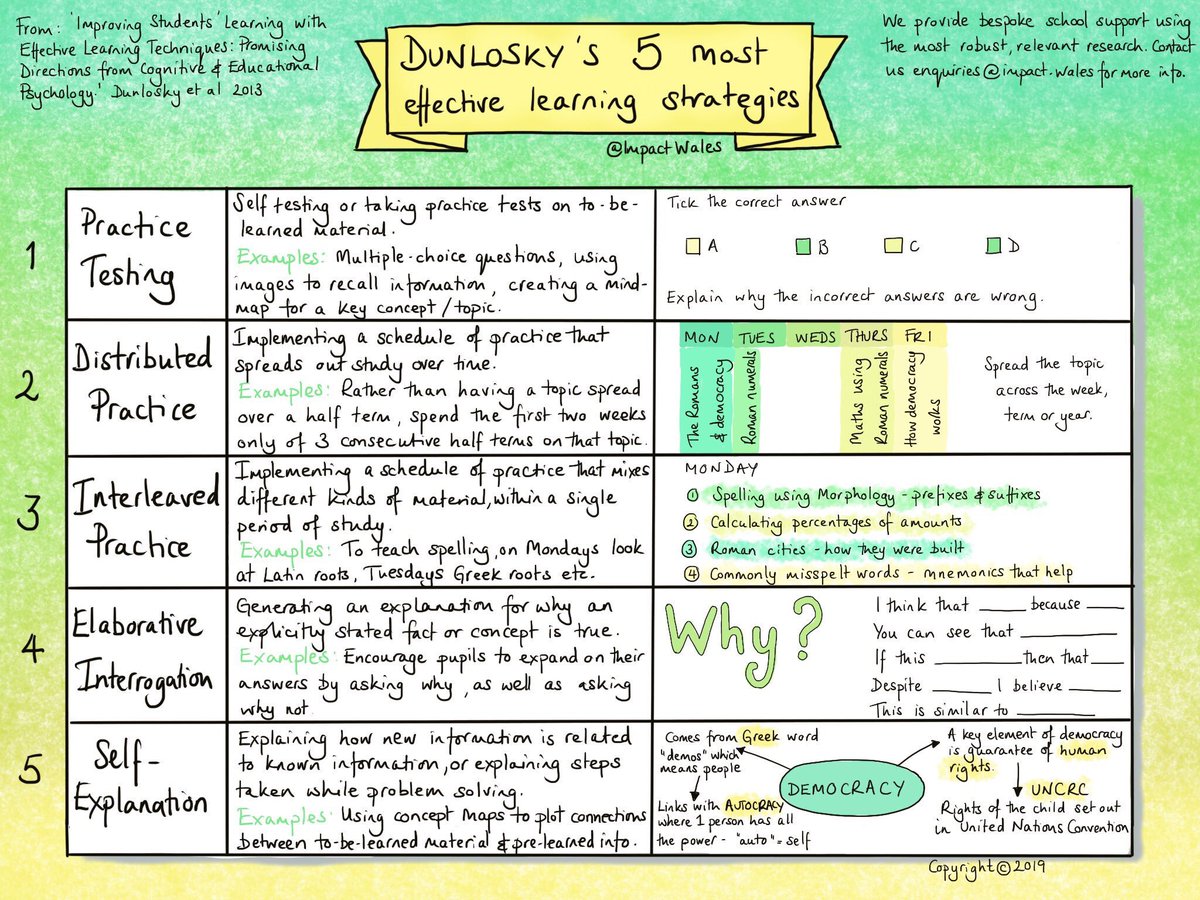 From: 'Improving Students' Learning with
Effective Learning Techniques: Promising
Directions from Cognitive & Educational
Psychology.' Dunlosky et al 2013
DUNLOSKY'S 5 most
effective learning strategies
@ImpactWales
We provide bespoke school support using
the most robust, relevant research. Contact
us enquiries@impact.wales for more info.
1
Practice
Testing
Self testing or taking practice tests on to-be-
learned material.
Examples: Multiple-choice questions, using
images to recall information, creating a mind-
map for a key concept/topic.
Tick the correct answer
A B C D
Explain why the incorrect answers are wrong.
2
Distributed
Practice
Implementing a schedule of practice that
spreads out study over time.
Examples: Rather than having a topic spread
over a half term, spend the first two weeks
only of 3 consecutive half terms on that topic.
MON TUES WEDS THURS FRI
The Romans
& democracy
Roman numerals
Maths using
Roman numerals
How democracy
works
Spread the topic
across the week,
term or year.
3
Interleaved
Practice
Implementing a schedule of practice that mixes
different kinds of material, within a single
period of study.
Examples: To teach spelling, on Mondays look
at Latin roots, Tuesdays Greek roots etc.
MONDAY
1 Spelling using Morphology - prefixes & suffixes
2 Calculating percentages of amounts
3 Roman cities - how they were built
4 Commonly misspelt words - mnemonics that help
4
Elaborative
Interrogation
Generating an explanation for why an
explicitly stated fact or concept is true.
Examples: Encourage pupils to expand on their
answers by asking why, as well as asking
why not
Why?
I think that ____ because ____
You can see that ____
If this ____ then that ____
Despite ____ I believe ____
This is similar to ____
5
Self-
Explanation
Explaining how new information is related
to known information, or explaining steps
taken while problem solving.
Examples: Using concept maps to plot connections
between to-be-learned material & pre-learned info.
Comes from Greek word
"demos" which
means people
Links with AUTOCRACY
where 1 person has all
the power - "auto" = self
DEMOCRACY
A key element of democracy
is guarantee of human
rights.
UNCRC
Rights of the child set out
in United Nations Convention
Copyright © 2019